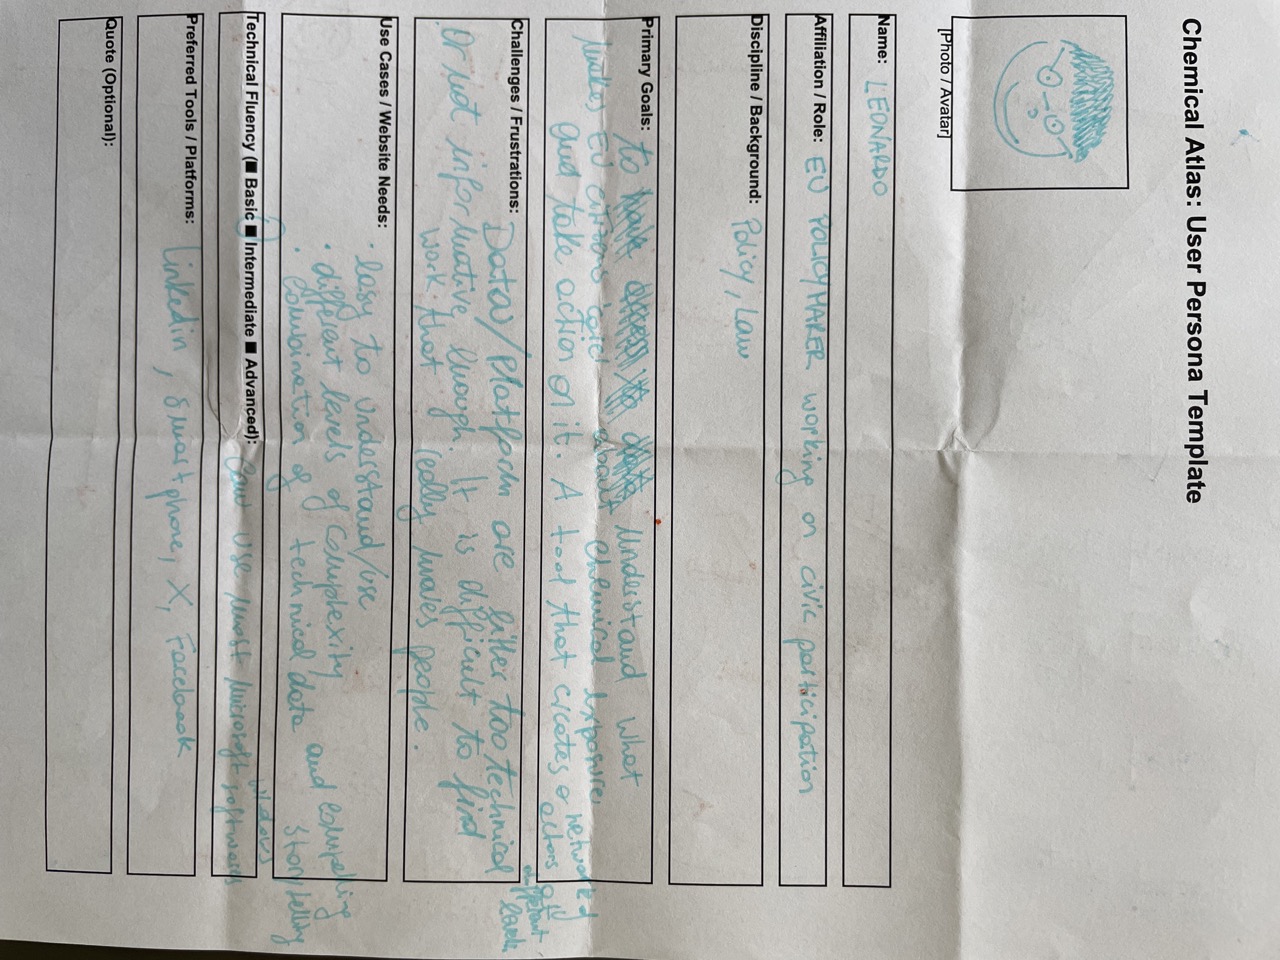 Chemical Atlas: User Persona Template
[Photo / Avatar]
Name: LEONARDO
Affiliation / Role: EU POLICYMAKER working on civic participation
Discipline / Background: Policy, Law
Primary Goals: to understand what
makes EU citizens 'care' about chemical exposure
and take action on it. A tool that creates a network of
actors at
different
levels
Challenges / Frustrations: Data/Platform are either too technical
or not informative enough. It is difficult to find
work that really moves people.
Use Cases / Website Needs: • easy to understand/use
• different levels of complexity
• combination of technical data and compelling
storytelling
Technical Fluency (■ Basic ■ Intermediate ■ Advanced): Can use most Microsoft windows softwares
Preferred Tools / Platforms: Linkedin, smartphone, X, Facebook
Quote (Optional):